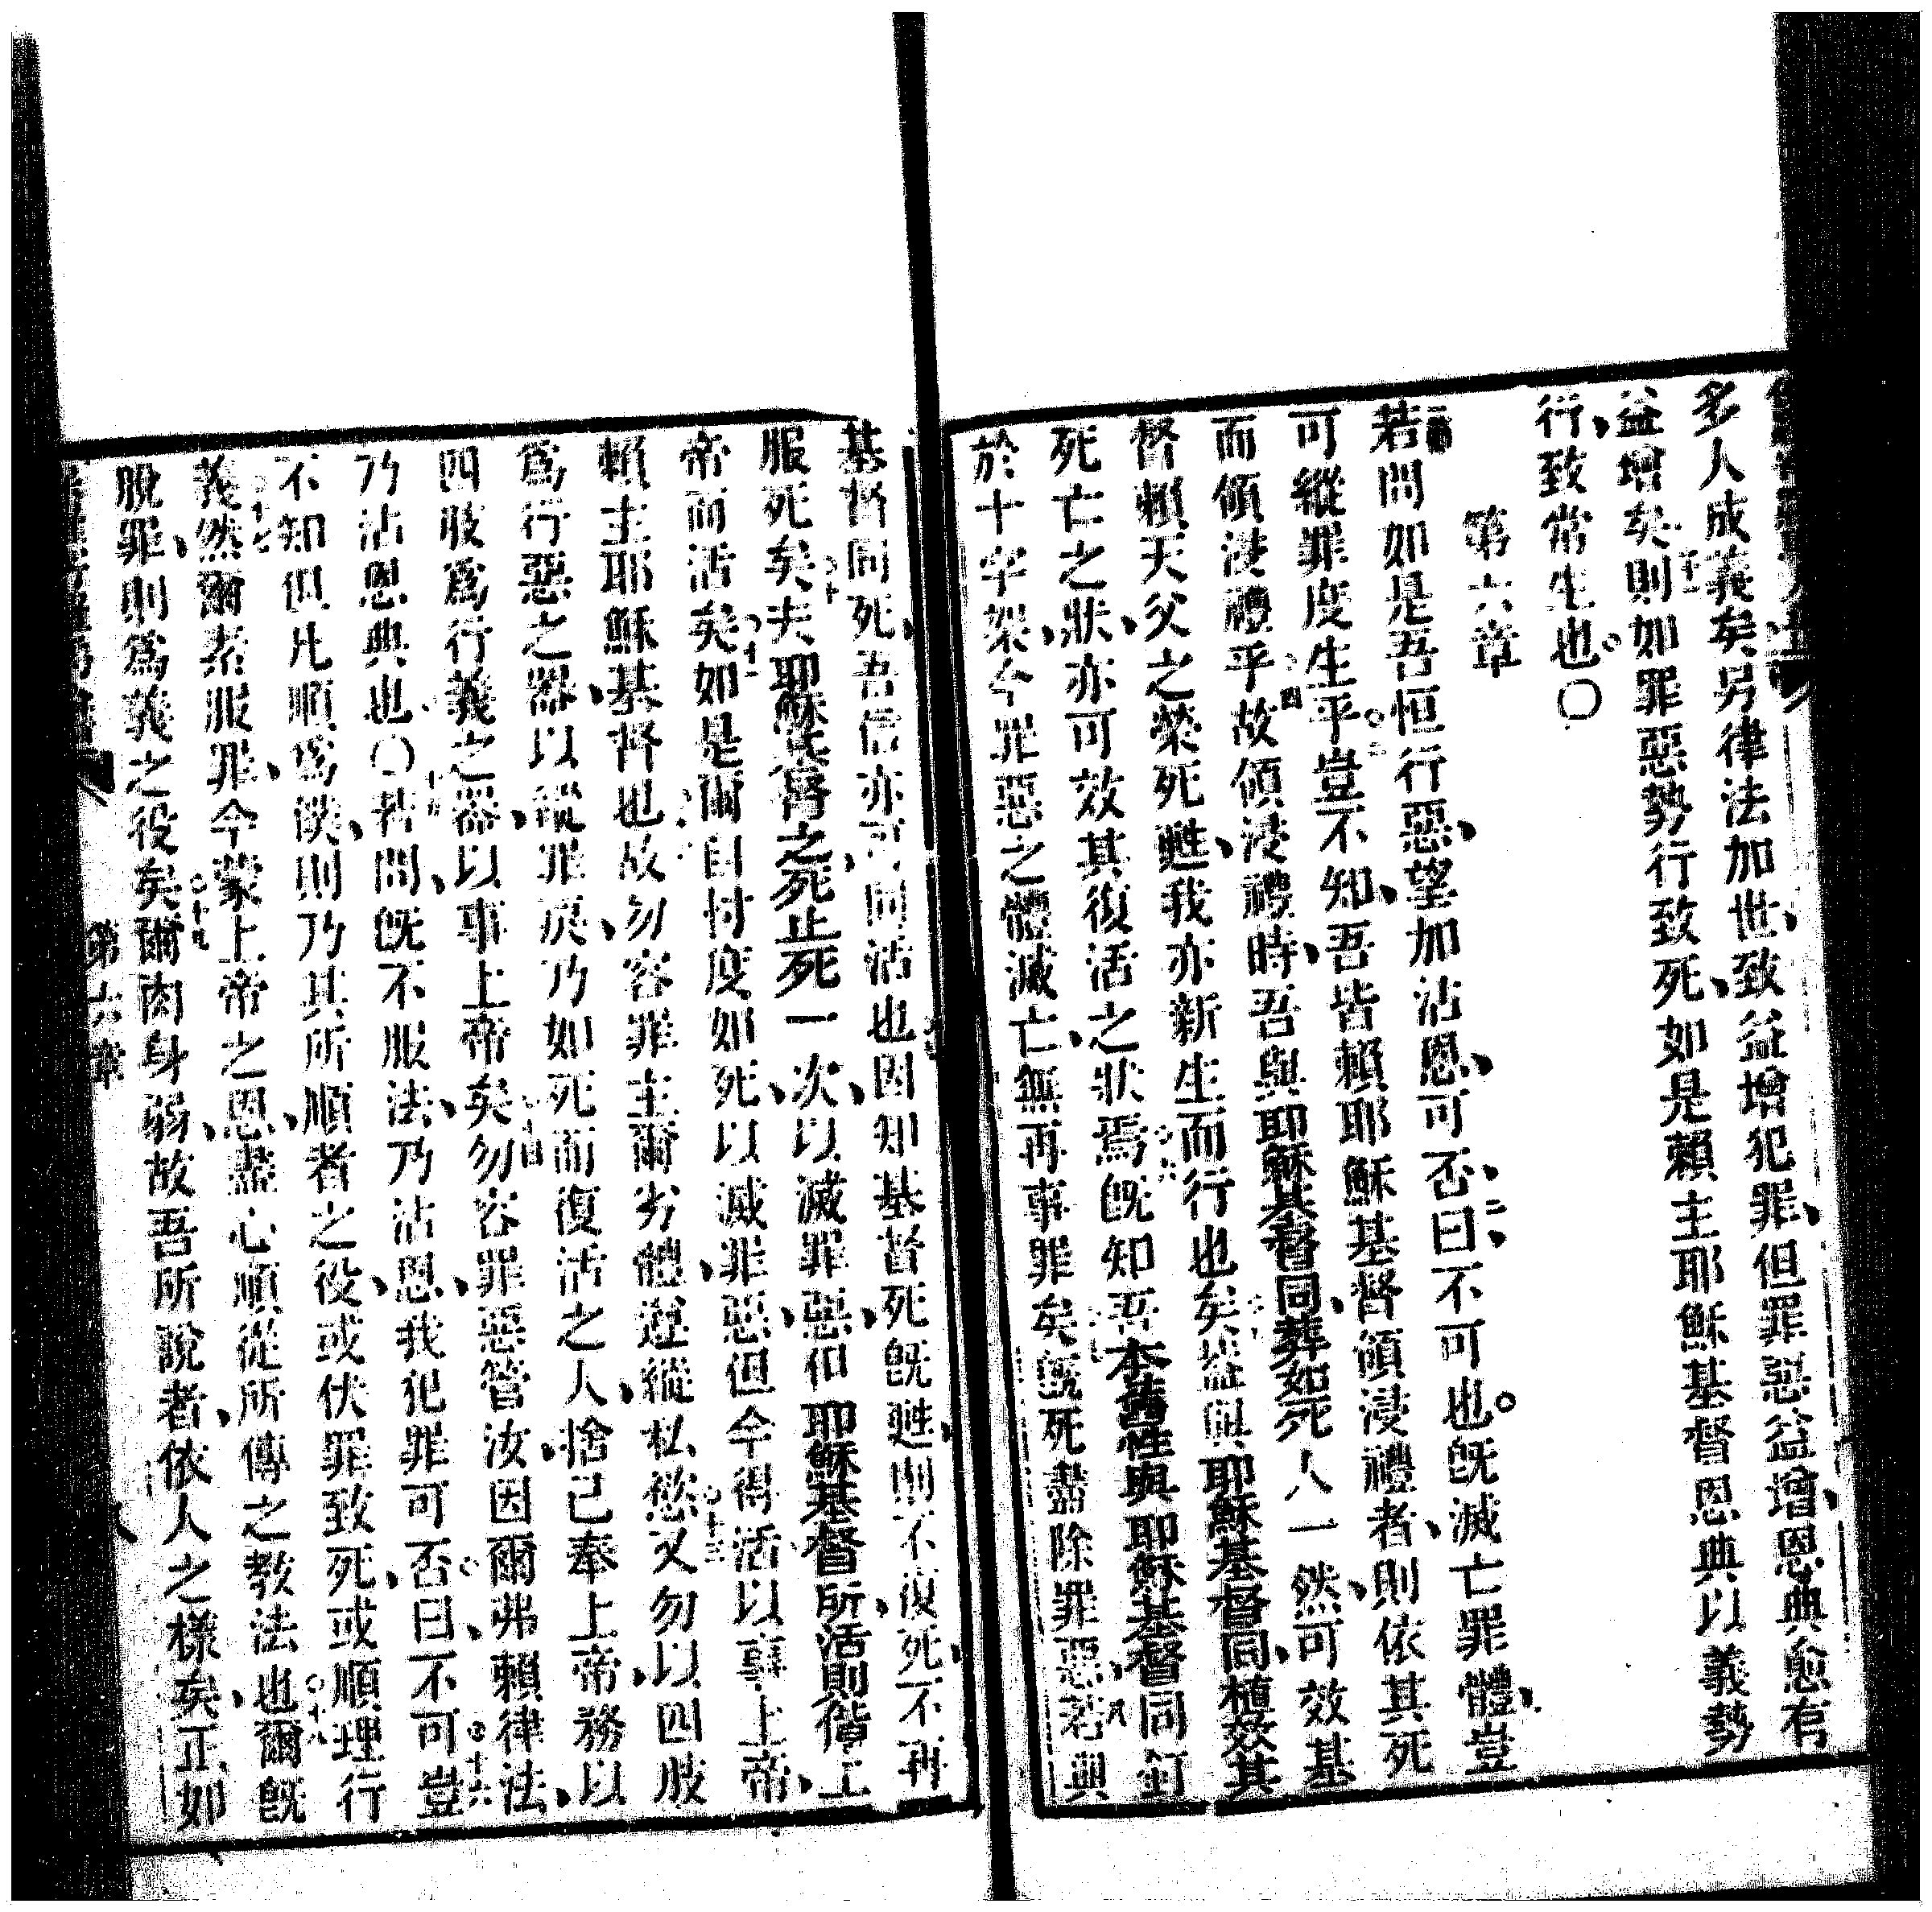 多人成義矣另律法加世致益增犯罪但罪惡益增恩典愈有
益增矣則如罪惡勢行致死如是賴主耶穌基督恩典以義勢
行致常生也〇
第六章
若問如是吾恒行惡望加沾恩可否曰不可也旣滅亡罪體豈
可縱罪度生乎豈不知吾皆賴耶穌基督領浸禮者則依其死
而領浸禮乎故領浸禮時吾與耶穌基督同葬如死人一然可效基
督賴天父之榮死甦我亦新生而行也矣蓋與耶穌基督同植效其
死亡之狀亦可效其復活之狀焉旣知吾本舊性與耶穌基督同釘
於十字架今罪惡之體滅亡無再事罪矣旣死盡除罪惡若與
基督同死吾信亦同活也因知基督死旣甦則不復死不再
服死矣夫耶穌基督之死止死一次以滅罪惡但耶穌基督所活則偕上
帝而活矣如是爾自忖度如死以滅罪惡但今得活以事上帝
賴主耶穌基督也故勿容罪主爾劣體逞縱私慾又勿以四肢
爲行惡之器以縱罪戾乃如死而復活之人捨己奉上帝務以
四肢爲行義之器以事上帝矣勿容罪惡管汝因爾弗賴律法
乃沾恩典也〇若問旣不服法乃沾恩我犯罪可否曰不可豈
不知但凡順爲僕則乃其所順者之役或伏罪致死或順理行
義然爾素服罪今蒙上帝之恩盡心順從所傳之教法也爾旣
脫罪則爲義之役矣爾肉身弱故吾所說者依人之樣矣正如
第六章